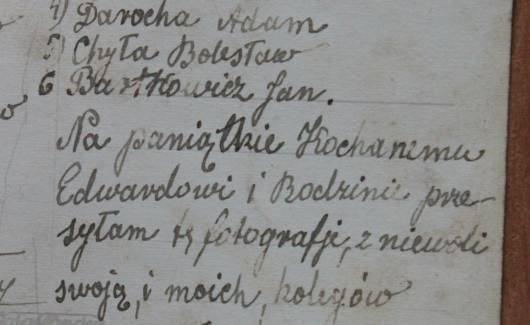 4) Darocha Adam
5) Chyła Bolesław
6 Bartkowicz Jan.
Na paniątkie Kochanemu
Edwardowi i Rodzinie prze-
syłam tę fotografje, z niewoli
swoją, i moich, kolegów